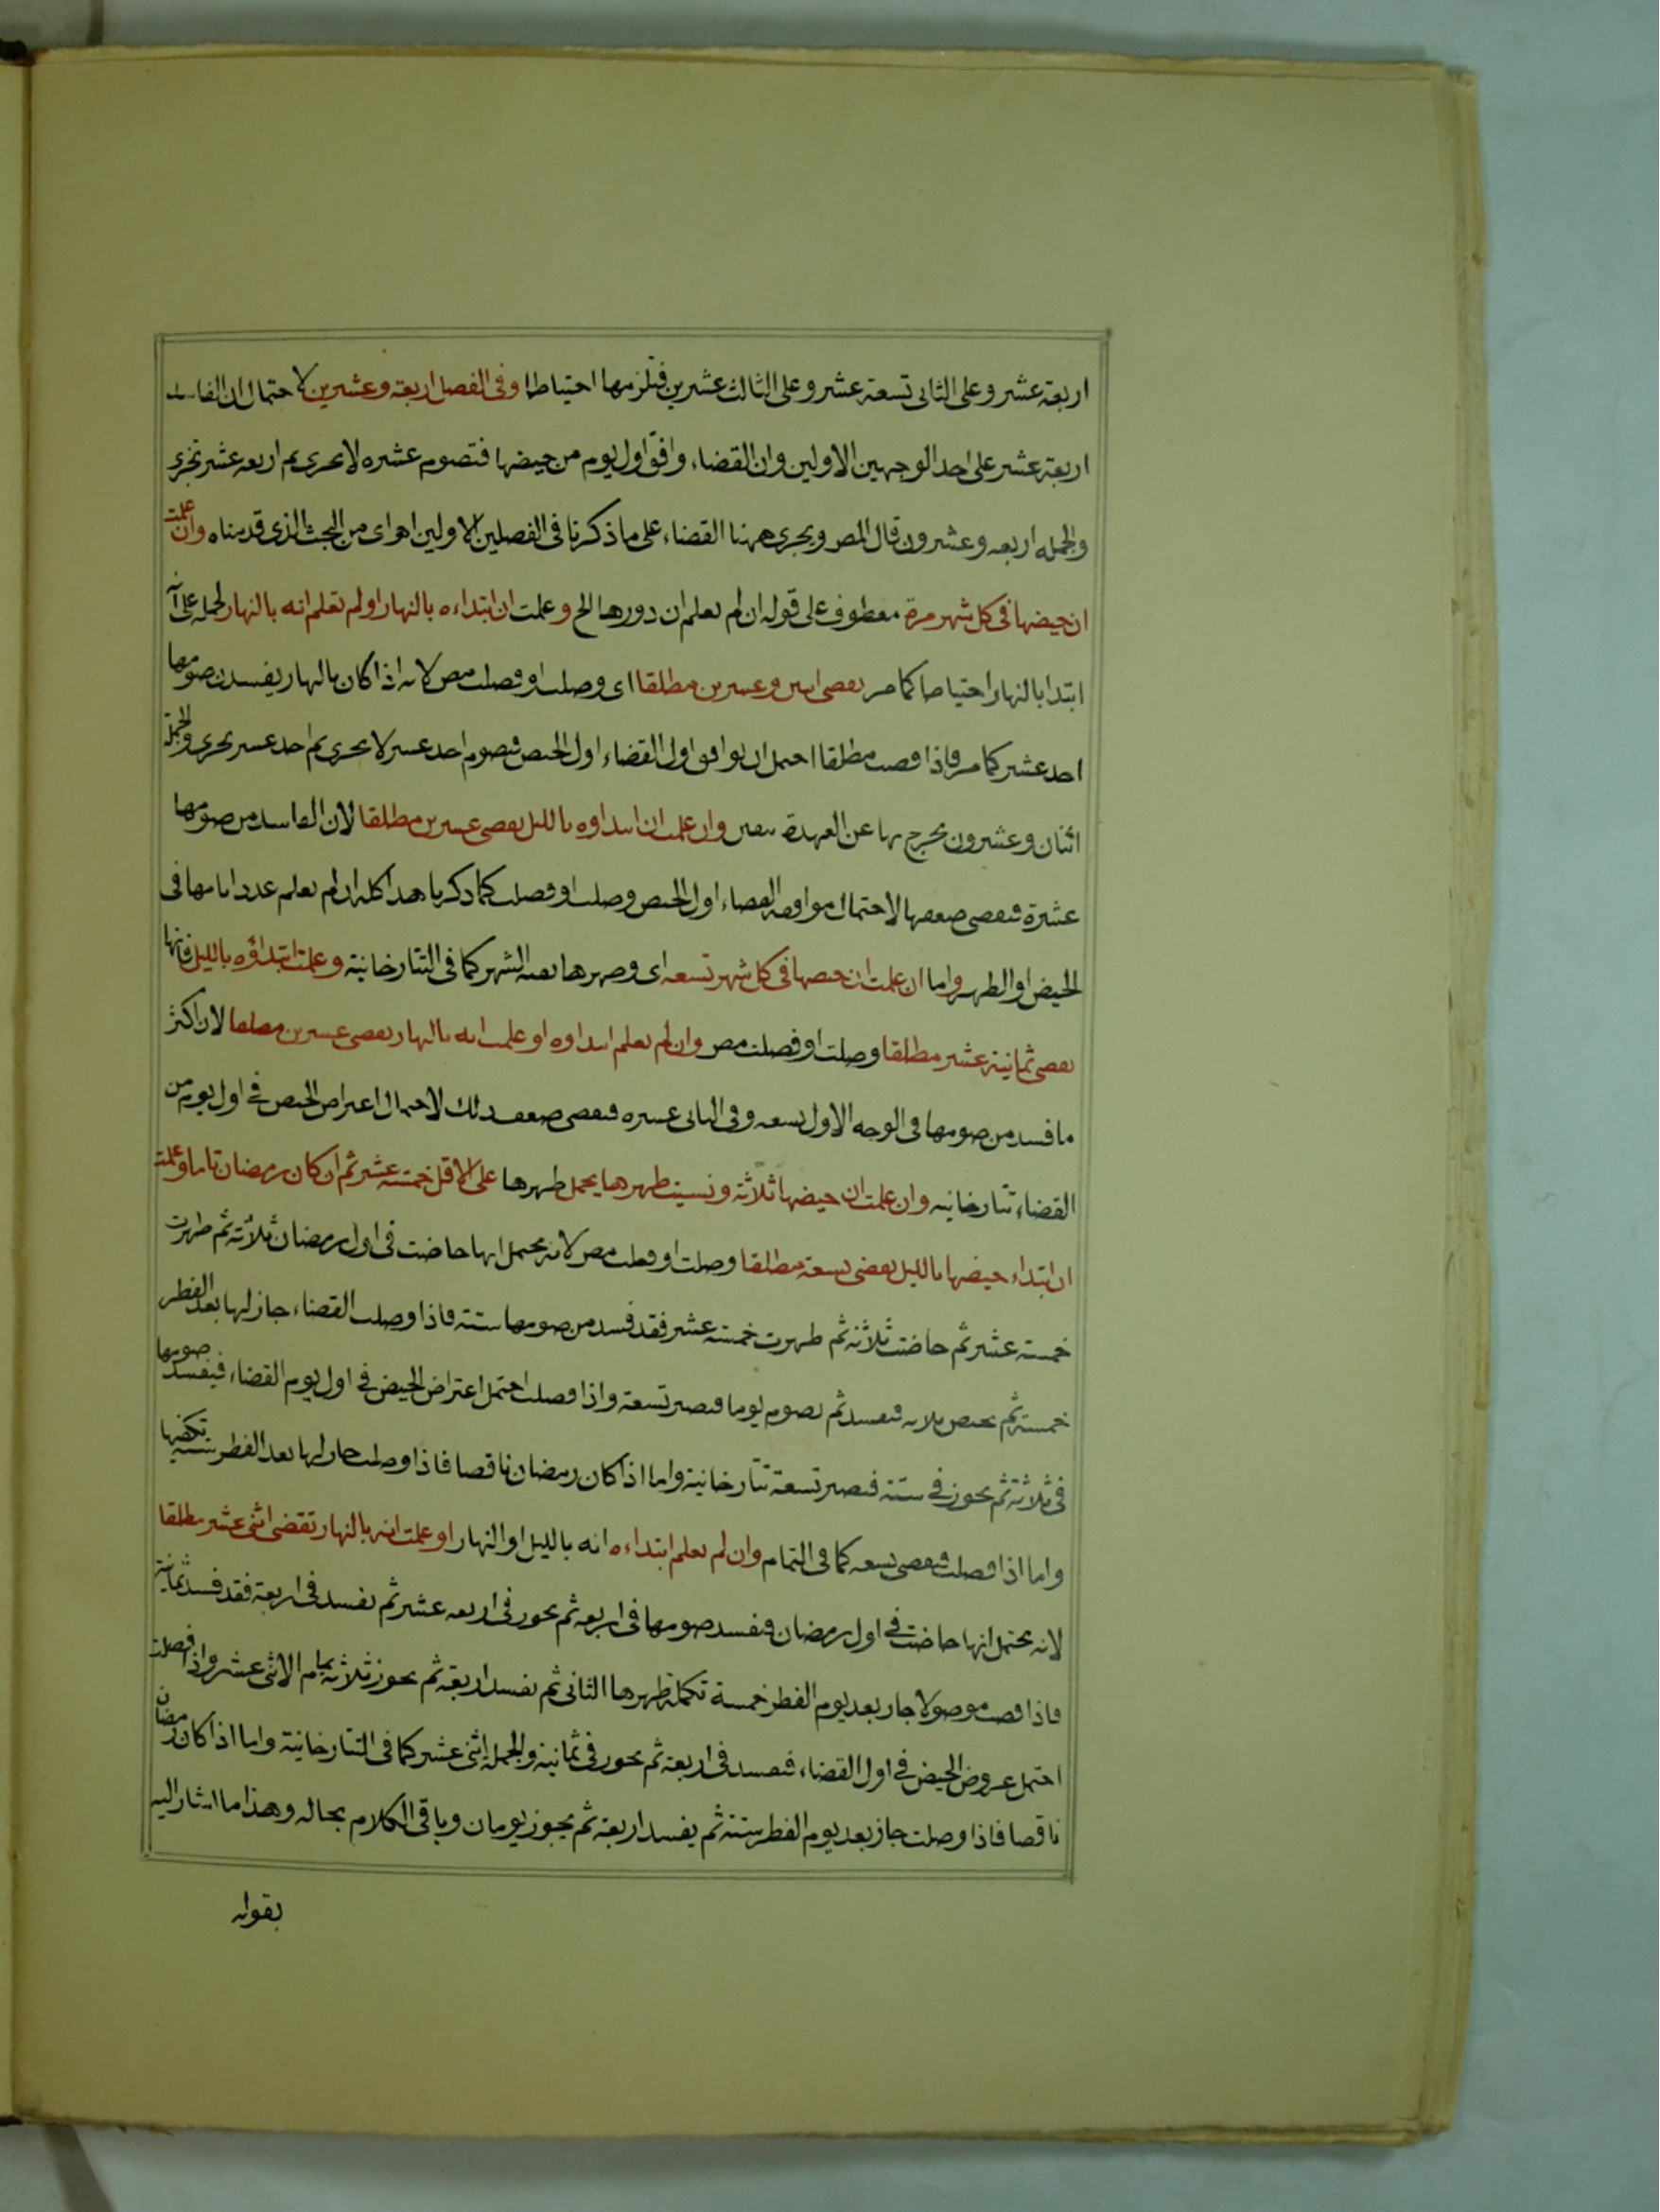 اربعة عشر وعلى الثانى تسعة عشر وعلى الثالث عشرين فتلزمها احتياطا وفى الفصل اربعة وعشرين لاحتمال ان الفاسد
اربعة عشر على احد الوجهين الاولين وان القضاء وافق اول يوم من حيضها فتصوم عشره لا تجزى ثم اربعه عشر تجزى
والجمله اربعه وعشرون قال المص ويجرى ههنا القضاء على ما ذكرنا فى الفصلين الاولين اهـ اى من البحث الذى قدمناه وان علمت
ان حيضها فى كل شهر مرة معطوف على قوله ان لم تعلم ان دورها الخ وعلمت ان ابتداءه بالنهار اولم تعلم انه بالنهار لحمله على انه
ابتدا بالنهار احتياطا كما مر تقضى اثنين وعشرين مطلقا اى وصلت او فصلت مص لانه اذا كان بالنهار يفسد من صومها
احد عشر كما مر فاذا قضت مطلقا احتمل ان يوافق اول القضاء اول الحيض فتصوم احد عشر لا تجزى ثم احد عشر تجزى والجملة
اثنان وعشرون تخرج بها عن العهدة بيقين وان علمت ان ابتداوه بالليل تقضى عشرين مطلقا لان الفاسد من صومها
عشرة فتقضى ضعفها لاحتمال موافقه القضاء اول الحيض وصلت او فصلت كما ذكرنا هذا كله ان لم تعلم عدد ايامها فى
الحيض او الطهر واما ان علمت ان حيضها فى كل شهر تسعه اى وطهرها بقيه الشهر كما فى التتارخانية وعلمت ابتداؤه بالليل فانها
تقضى ثمانية عشر مطلقا وصلت او فصلت مص وان لم تعلم ابتداوه او علمت انه بالنهار تقضى عشرين مطلقا لان اكثر
ما فسد من صومها فى الوجه الاول تسعه وفى الثانى عشره فتقضى ضعف ذلك لاحتمال اعتراض الحيض فى اول يوم من
القضاء تتارخانيه وان علمت ان حيضها ثلاثة ونسيت طهرها يحمل طهرها على الاقل خمسة عشر ثم ان كان رمضان تاما وعلمت
ان ابتداء حيضها بالليل تقضى تسعة مطلقا وصلت او فصلت مص لانه يحتمل انها حاضت فى اول رمضان ثلاثة ثم طهرت
خمسة عشر ثم حاضت ثلاثة ثم طهرت خمسة عشر فقد فسد من صومها ستة فاذا وصلت القضاء جاز لها بعد الفطر
خمسة ثم تحيض ثلاثه فتفسد ثم تصوم يوما فتصير تسعة واذا فصلت احتمل اعتراض الحيض فى اول يوم القضاء فيفسد صومها
فى ثلاثة ثم يجوز فى ستة فتصير تسعة تتارخانية واما اذا كان رمضان ناقصا فاذا وصلت جاز لها بعد الفطر ستة تكفيها
واما اذا فصلت فتقضى تسعه كما فى التمام وان لم تعلم ابتداءه انه بالليل او النهار او علمت انه بالنهار تقضى اثنى عشر مطلقا
لانه يحتمل انها حاضت فى اول رمضان فتفسد صومها فى اربعه ثم يجوز فى اربعه عشر ثم يفسد فى اربعة فقد فسد ثمانية
فاذا قضت موصولا جاز بعد يوم الفطر خمسة تكملة طهرها الثانى ثم يفسد اربعة ثم يجوز ثلاثة تمام الاثنى عشر واذا فصلت
احتمل عروض الحيض فى اول القضاء فتفسد فى اربعة ثم يجوز فى ثمانية والجمله اثنى عشر كما فى التتارخانية واما اذا كان رمضان
ناقصا فاذا وصلت جاز بعد يوم الفطر ستة ثم يفسد اربعة ثم يجوز يومان وباقى الكلام بحاله وهذا ما اشار اليه
بقوله